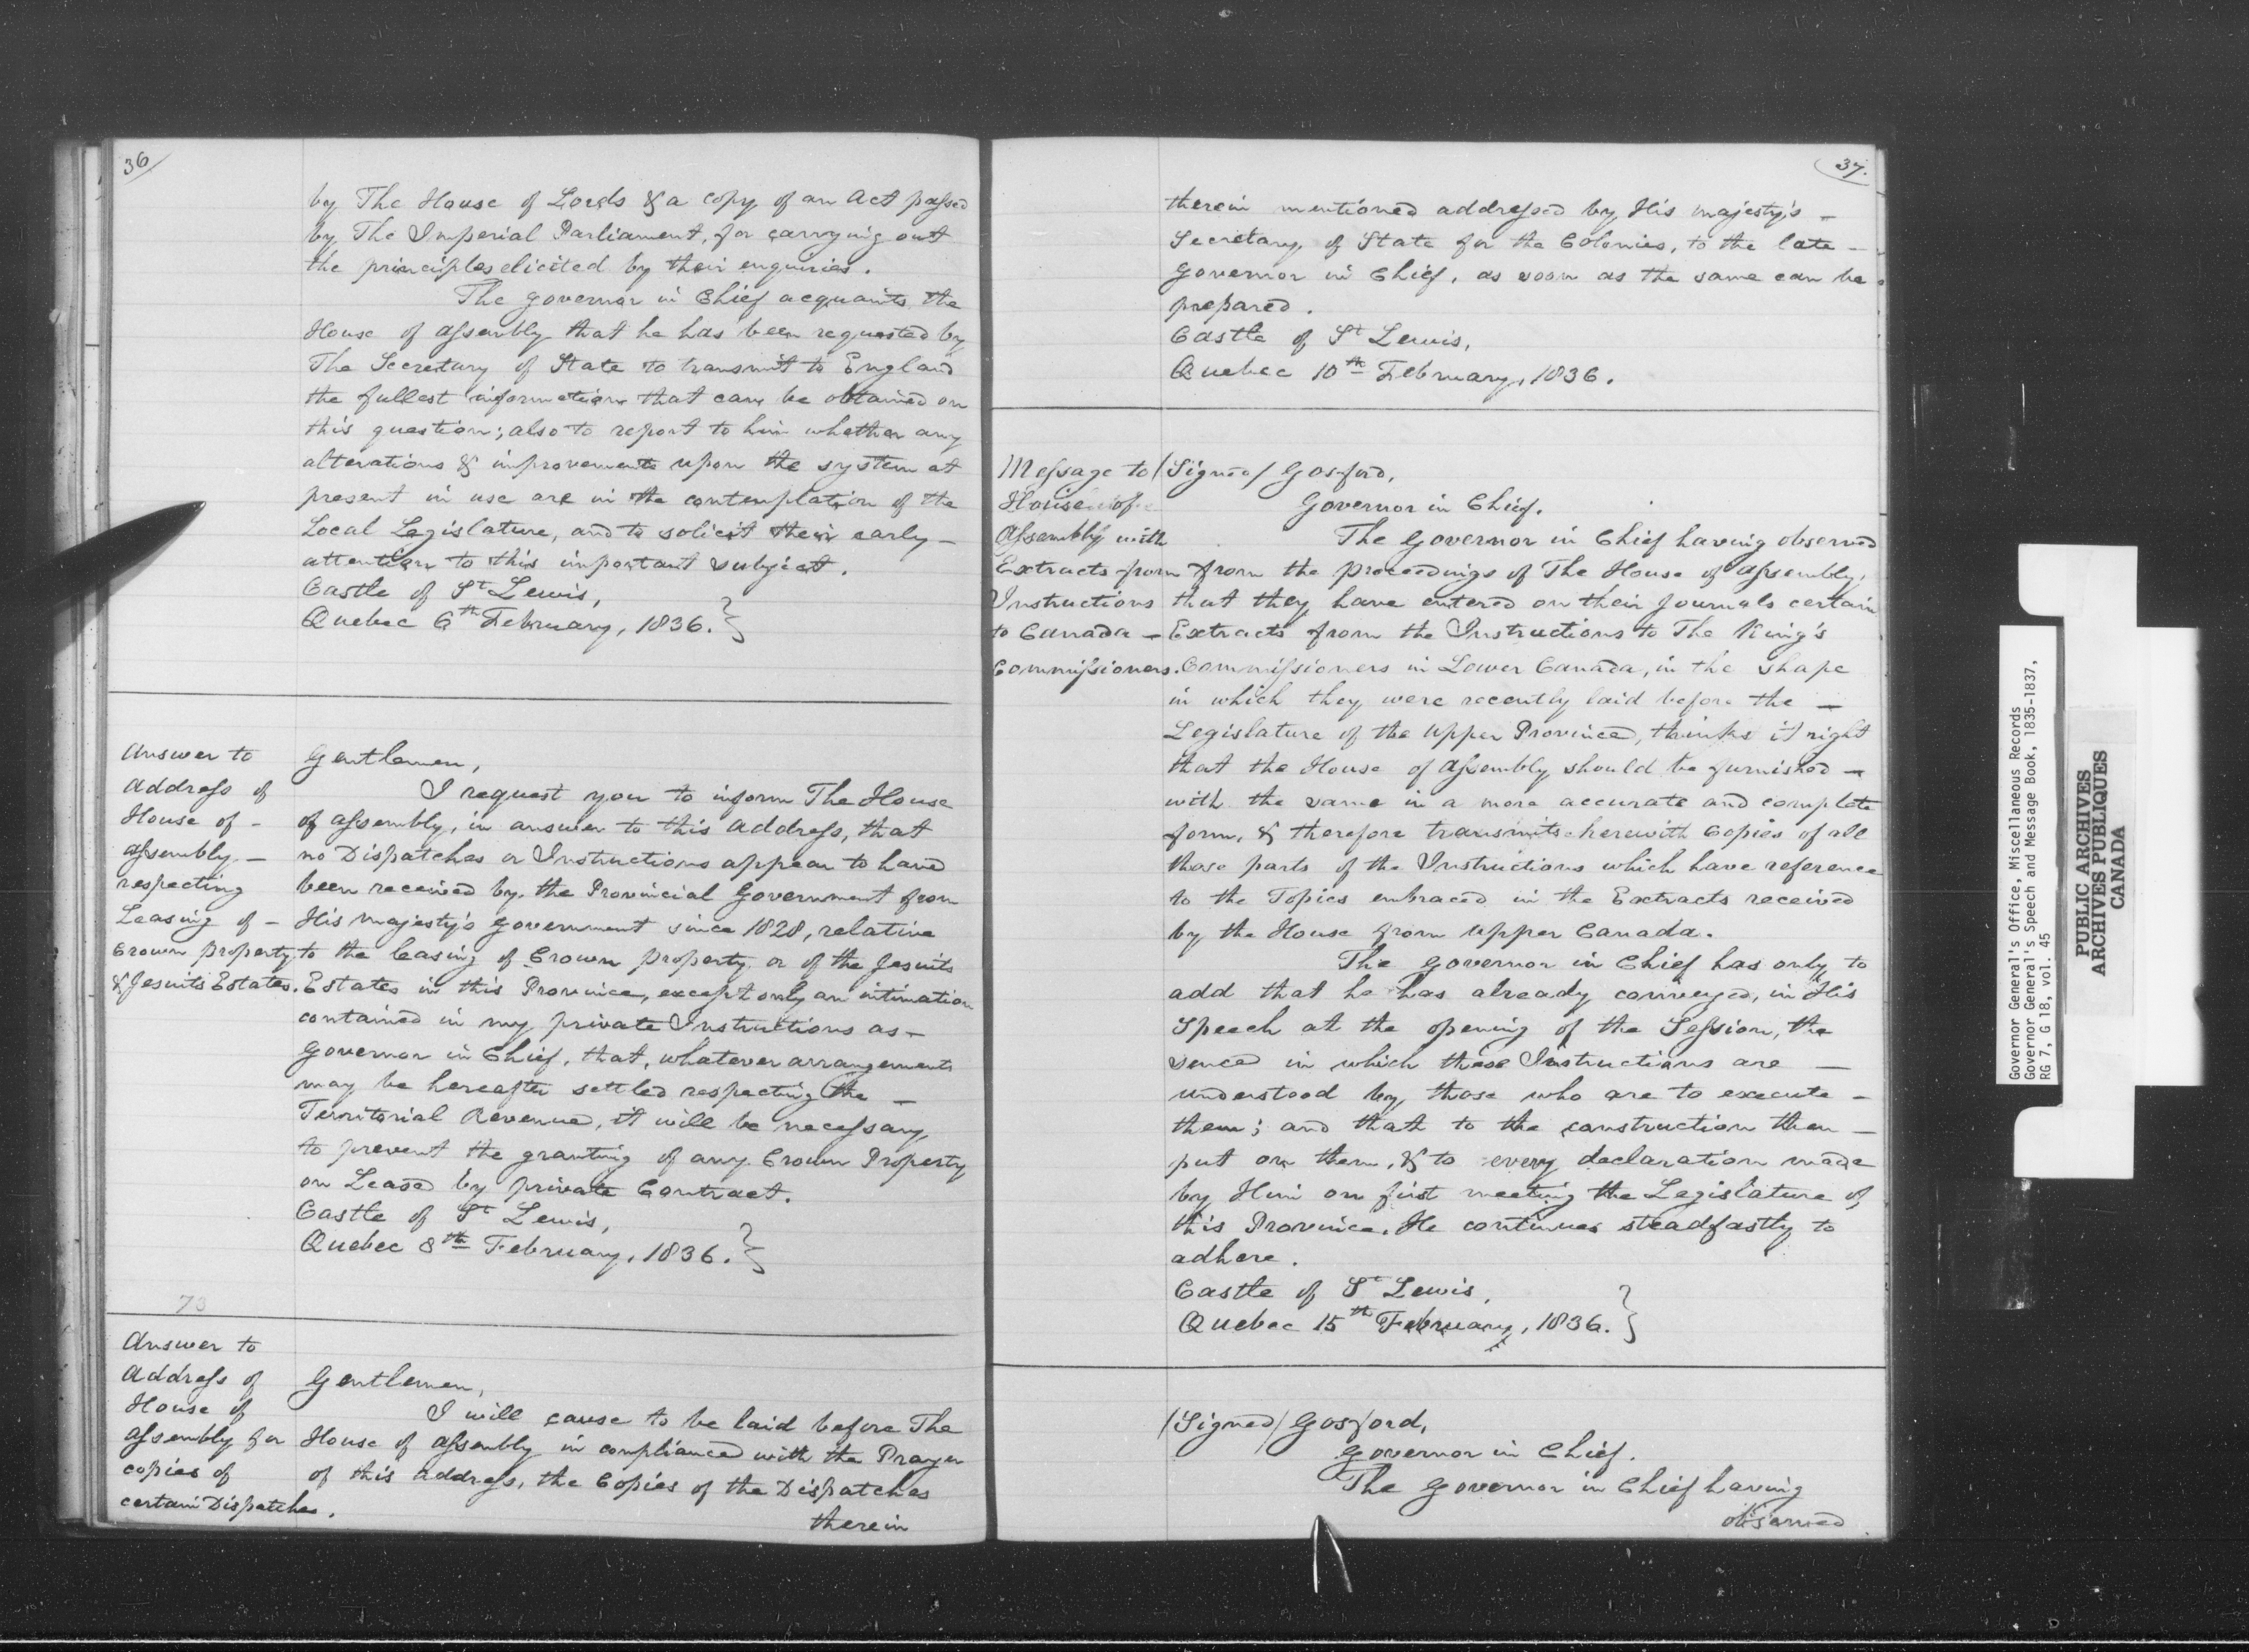 36
by The House of Lords & a copy of an Act passed
by The Imperial Parliament, for carrying out
the principles elicited by their enquiries.
The Governor in Chief acquaints the
House of Assembly that he has been requested by
The Secretary of State to transmit to England
the fullest information that can be obtained on
this question; also to report to him whether any
alterations & improvements upon the system at
present in use are in the contemplation of the
Local Legislature, and to solicit their early –
attention to this important subject.
Castle of St Lewis,
Quebec 6th February, 1836.
Answer to
Address of
House of –
Assembly –
respecting
Leasing of –
Crown property
& Jesuits Estates.
Gentlemen,
I request you to inform The House
of Assembly, in answer to this Address, that
no Dispatches or Instructions appear to have
been received by the Provincial Government from
His Majesty's Government since 1828, relative
to the leasing of Crown property or of the Jesuits
Estates in this Province, except only an intimation
contained in my private Instructions as –
Governor in Chief, that, whatever arrangements
may be hereafter settled respecting the –
Territorial Revenue, it will be necessary
to prevent the granting of any Crown Property
on Lease by private Contract.
Castle of St Lewis,
Quebec 8th February, 1836.
73
Answer to
Address of
House of
Assembly for
copies of
certain Dispatches.
Gentlemen,
I will cause to be laid before The
House of Assembly in compliance with the Prayer
of this Address, the Copies of the Dispatches
therein
37.
therein mentioned addressed by His Majesty's –
Secretary of State for the Colonies, to the late –
Governor in Chief, as soon as the same can be
prepared.
Castle of St Lewis,
Quebec 10th February, 1836.
Message to
House of
Assembly with
Extracts from
Instructions
to Canada –
Commissioners.
/Signed/ Gosford,
Governor in Chief.
The Governor in Chief having observed
from the proceedings of The House of Assembly,
that they have entered on their Journals certain
Extracts from the Instructions to The King's
Commissioners in Lower Canada, in the shape
in which they were recently laid before the –
Legislature of the Upper Province, thinks it right
that the House of Assembly should be furnished –
with the same in a more accurate and complete
form, & therefore transmits herewith Copies of all
those parts of the Instructions which have reference
to the Topics embraced in the Extracts received
by the House from Upper Canada.
The Governor in Chief has only to
add that he has already conveyed, in His
Speech at the opening of the Session, the
sence in which these Instructions are –
understood by those who are to execute –
them; and that to the construction then –
put on them, & to every declaration made
by Him on first meeting the Legislature of
this Province, He continues steadfastly to
adhere.
Castle of St Lewis,
Quebec 15th February, 1836.
/Signed/ Gosford,
Governor in Chief.
The Governor in Chief having
observed
Governor General's Office, Miscellaneous Records
Governor General's Speech and Message Book, 1835-1837,
RG 7, G 18, vol. 45
PUBLIC ARCHIVES
ARCHIVES PUBLIQUES
CANADA